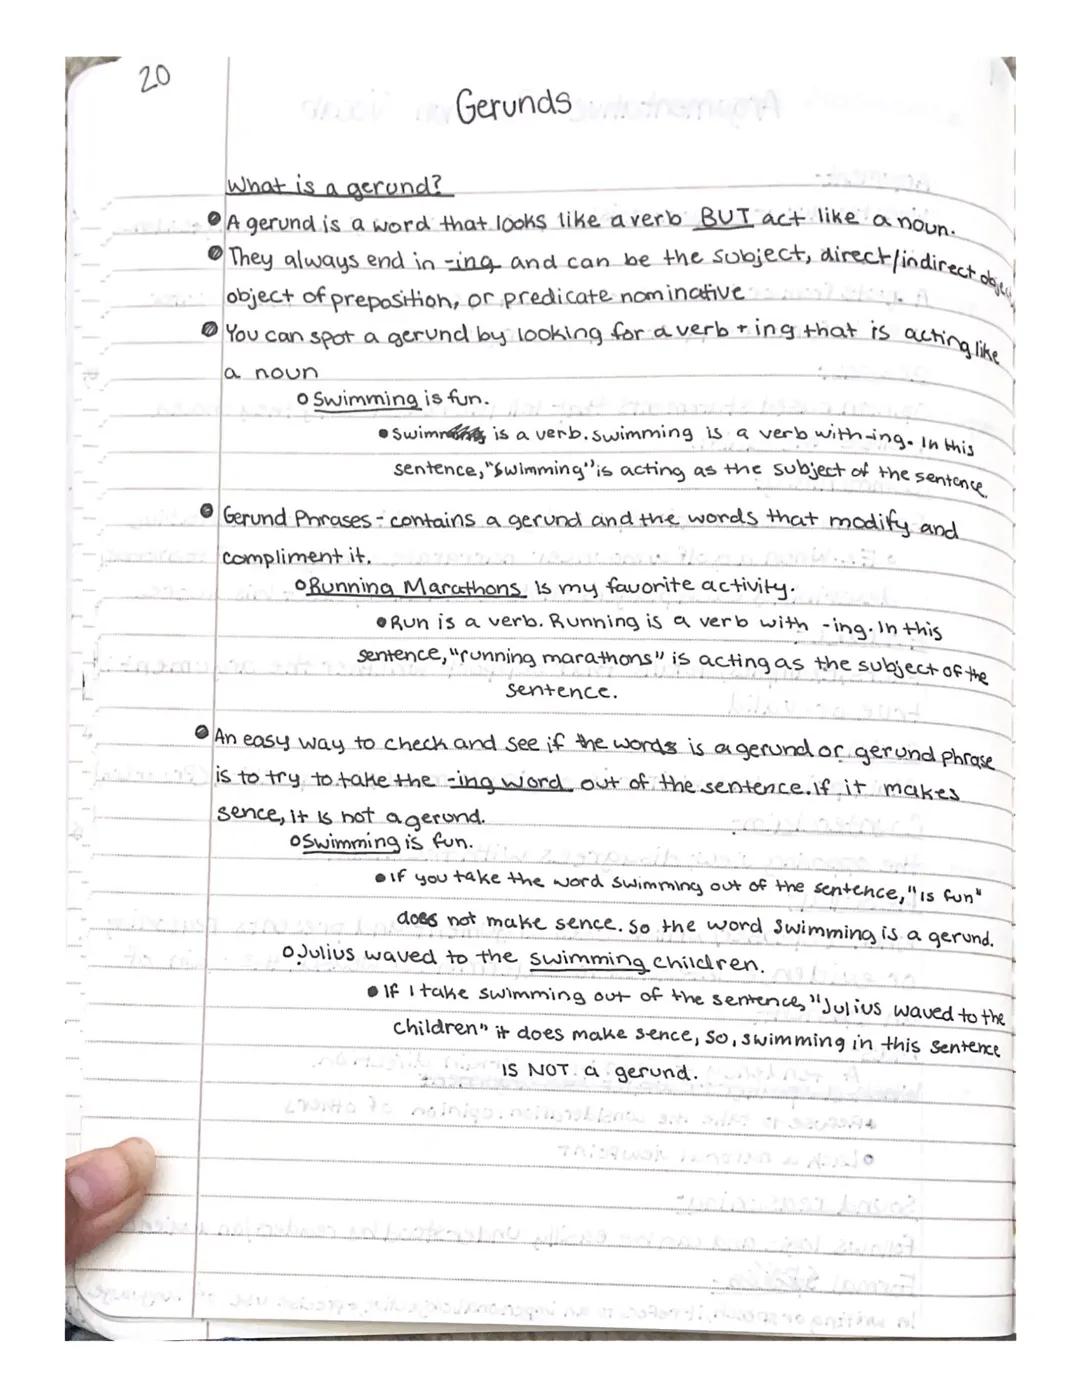 20
Gerunds
What is a gerund?
A gerund is a word that looks like a verb BUT act like a noun.
They always end in -ing and can be the subject, direct/indirect object
object of preposition, or predicate nominative
You can spot a gerund by looking for a verb + ing that is acting like
a noun
Swimming is fun.
Swim is a verb. swimming is a verb with -ing. In this
sentence, "Swimming" is acting as the subject of the sentence.
Gerund Phrases - contains a gerund and the words that modify and
compliment it.
Running Marathons is my favorite activity.
Run is a verb. Running is a verb with -ing. In this
sentence, "running marathons" is acting as the subject of the
sentence.
An easy way to check and see if the words is a gerund or gerund phrase
is to try to take the -ing word out of the sentence. If it makes
sence, it is not a gerund.
Swimming is fun.
If you take the word swimming out of the sentence, "is fun"
does not make sence. So the word Swimming is a gerund.
Julius waved to the swimming children.
If I take swimming out of the sentence, "Julius waved to the
children" it does make sence, so, swimming in this sentence
IS NOT a gerund.